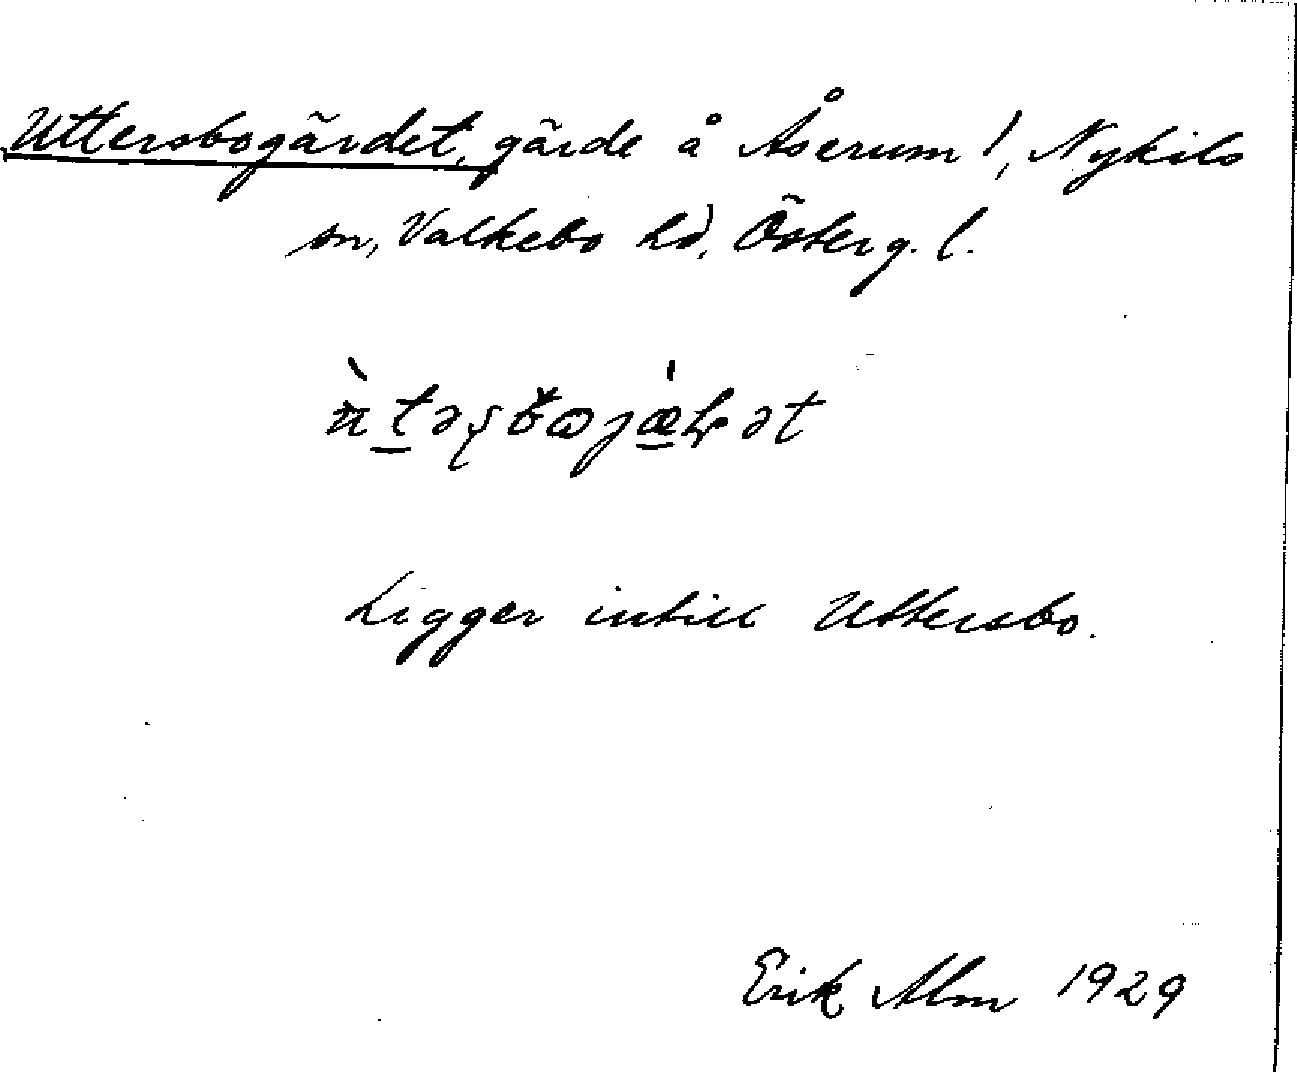 Uttersbogärdet, gärde å Åserum 1, Nykils
sn, Valkebo hd, Österg. l.
Ligger intill Uttersbo.
Erik Alm 1929